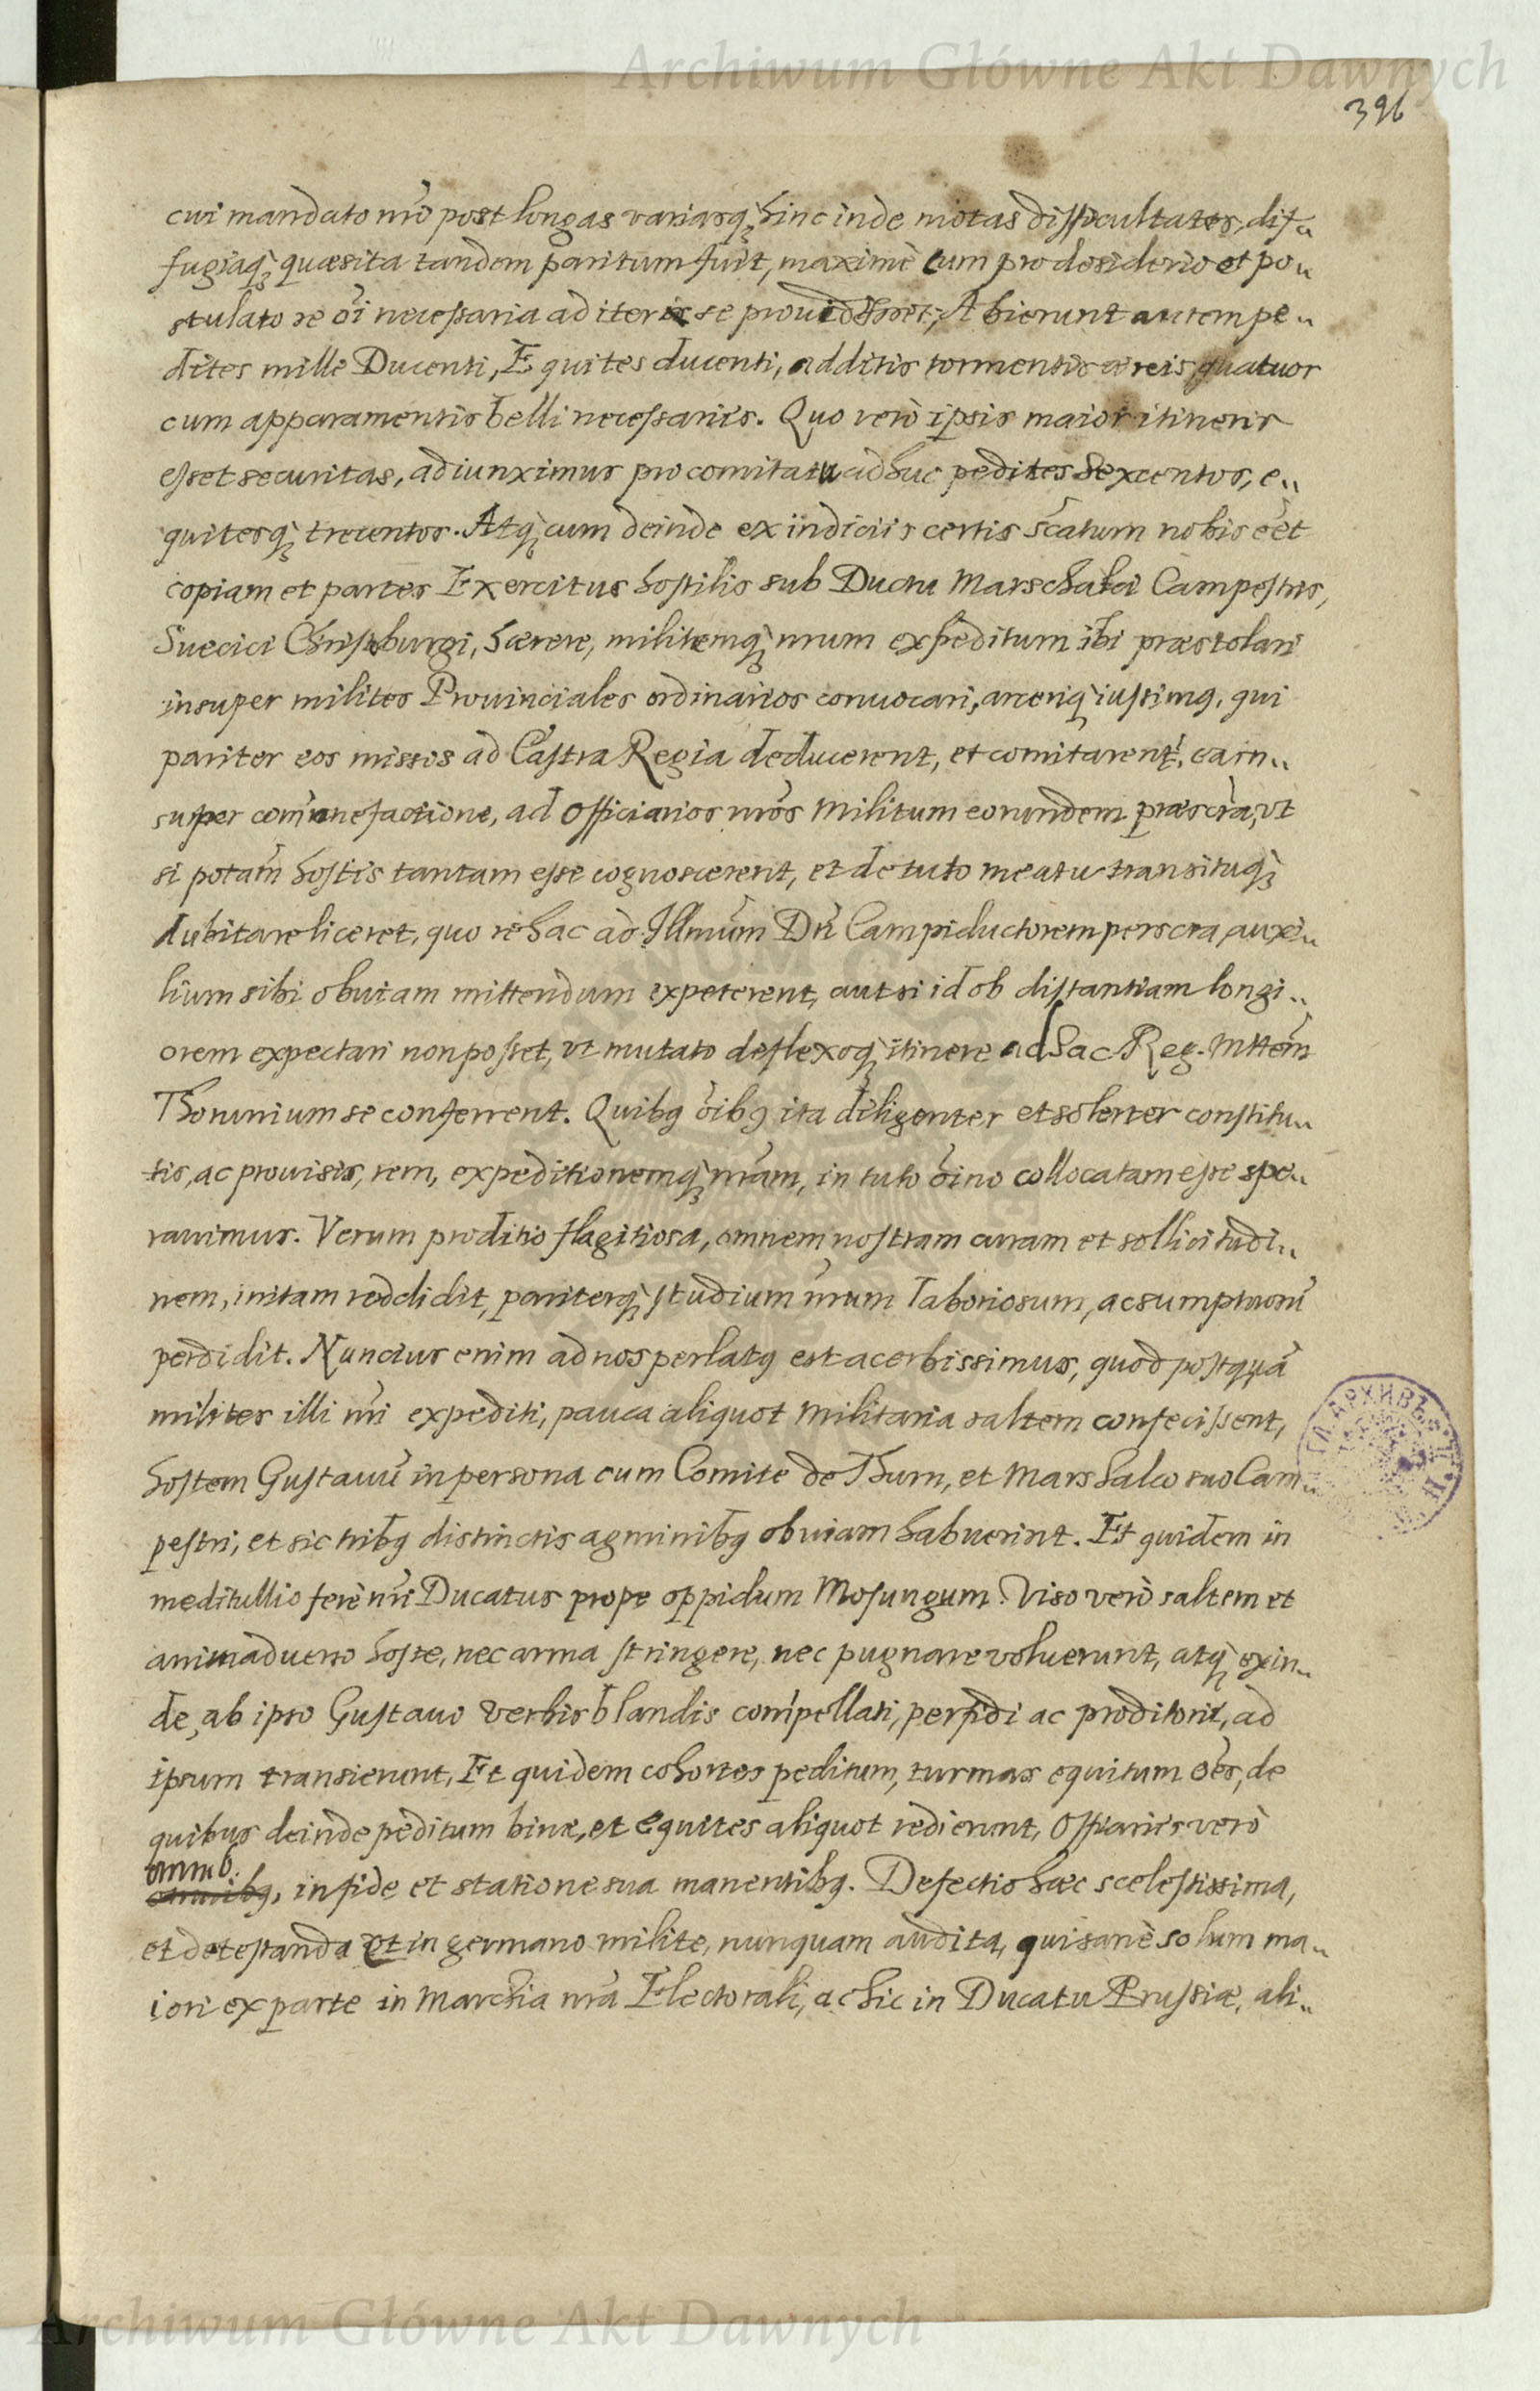 Archiwum Główne Akt Dawnych
396
cui mandato nr̃o post longas variasq̀ hinc inde motas difficultates, dif„
fugiaq̀ quæsita tandem paritum fuit, maximè cum pro desiderio et po„
stulato re õi necessaria ad iter se Abierunt autem pe„
dites mille Ducenti, Equites ducenti, additis tormentis æreis quatuor
cum apparamentis belli necessariis. Quo verò ipsis maior itineris
esset securitas, adiunximus pro comitatu adhuc pedites sexcentos, e„
quitesq̀ trecentos. Atq̀ cum deinde ex indiciis certis nobis eẽt
copiam et partes Exercitus hostilis sub Ductu Marschalci Campestris,
Suecici Christburgi, hærere, militemq̀ nrum expeditum ibi præstolari
insuper milites Prouinciales ordinarios conuocari, arceriq̀ iussimꝰ, qui
pariter eos missos ad Castra Regia deducerent, et comitarent, ea in„
super com̃onefactione, ad Officiarios nrõs Militum eorundem præscrã, vt
si potam̃ hostis tantam esse cognoscerent, et de tuto meatu transituq̀
dubitare liceret, quo re hac ad Illmum̃ Dñ Campiductorem perscrã, auxi„
lium sibi obuiam mittendum expeterent, aut si id ob distantiam longi„
orem expectari non posset, vt mutato deflexoq̀ itinere ad Sac Reg. Mttem̃
Thorunium se conferrent. Quibꝰ õibꝰ ita diligenter et solerter constitu„
tis, ac prouisis, rem, expeditionemq̀ nram̃, in tuto õino collocatam esse spe„
rauimus. Verum proditio flagitiosa, omnem nostram curam et sollicitudi„
nem, irritam reddidit, pariterq̀ studium nrum̃ laboriosum, ac sumptuosũ
perdidit. Nuncius enim ad nos perlatꝰ est acerbissimus, quod postquã
milites illi nri̇ expediti, pauca aliquot Militaria saltem confecissent,
hostem Gustauũ in persona cum Comite de Thurn, et Marshalco suo Cam„
pestri, et sic tribꝰ distinctis agminibꝰ obuiam habuerint. Et quidem in
meditullio ferè nri̇ Ducatus prope oppidum Mosungum. Viso verò saltem et
animaduerso hoste, nec arma stringere, nec pugnare voluerunt, atq̀ exin„
de, ab ipso Gustauo verbis blandis compellati, perfidi ac proditorii, ad
ipsum transierunt, Et quidem cohortes peditum, turmas equitum oẽs, de
quibus deinde peditum binæ, et equites aliquot redierunt, Officiariis verò
omnib.
in fide et statione sua manentibꝰ. Defectio hæc scelestissima,
et detestanda et in germano milite, nunquam audita, qui sanè solum ma„
iori ex parte in Marchia nrã Electorali, ac hic in Ducatu Prussiæ, ali„
Archiwum Główne Akt Dawnych